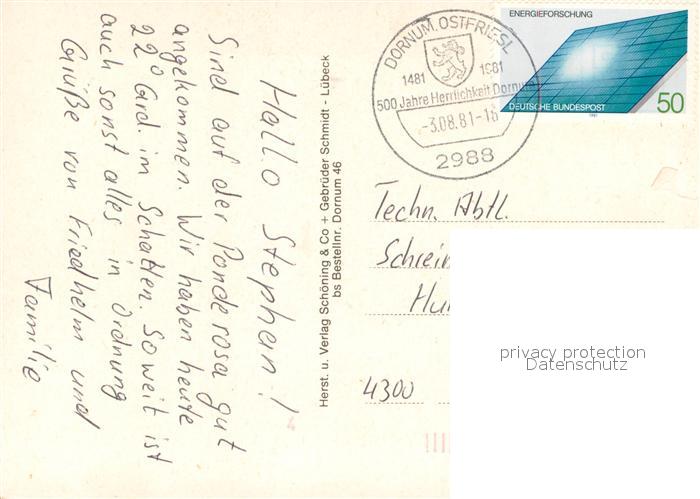 Hallo Stephan!
Sind auf der Ponderosa gut
angekommen. Wir haben heute
22° Grd. im Schatten. Soweit ist
auch sonst alles in Ordnung
Grüße von Friedhelm und
Familie
Herst. u. Verlag Schöning & Co + Gebrüder Schmidt - Lübeck
bs Bestellnr. Dornum 46
DORNUM, OSTFRIESL
1481 1981
500 Jahre Herrlichkeit Dornum
-3.08.81-18
2988
ENERGIEFORSCHUNG
DEUTSCHE BUNDESPOST
50
1981
Techn. Abtl.
Schrein
Hu
4300
4
privacy protection
Datenschutz